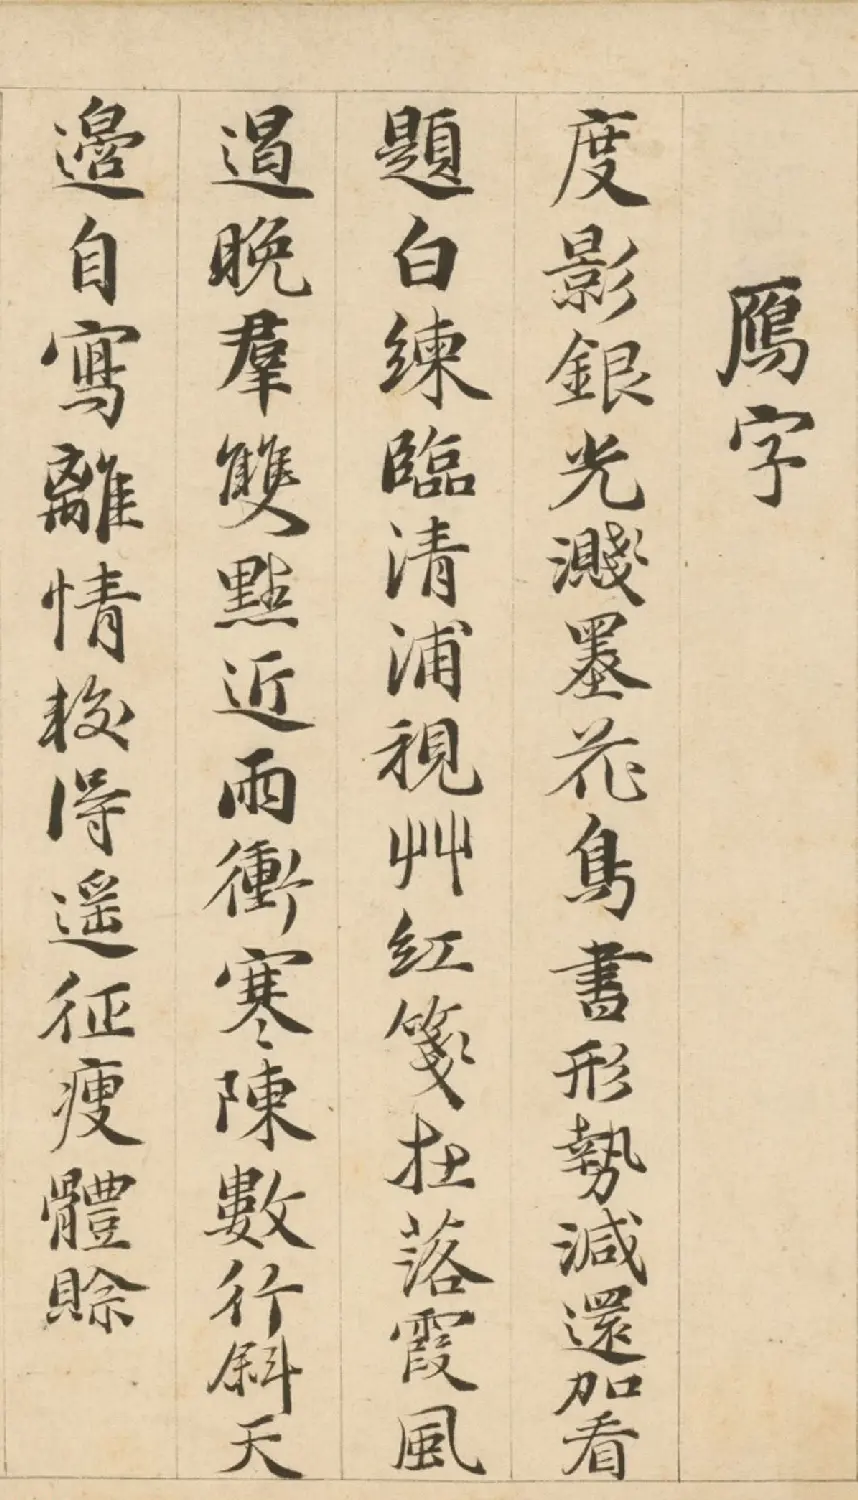 鴈字
度影銀光濺墨花鳥書形勢減還加看
題白練臨清浦視艸紅箋在落霞風
過晚羣雙點近雨衝寒陳數行斜天
邊自寫離情得遥征瘦體賒